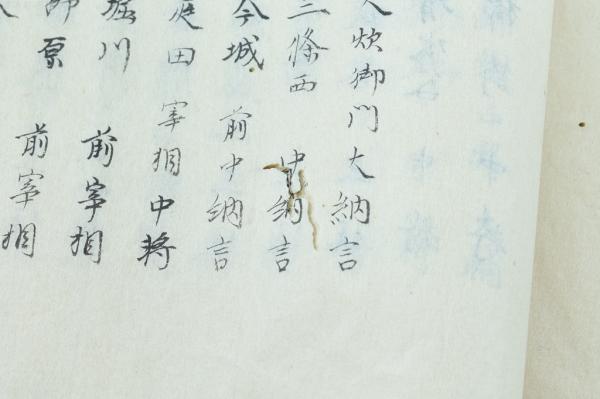 炊御門大納言
三條西 中納言
今城 前中納言
庭田 宰相中将
堀川 前宰相
原 前宰相